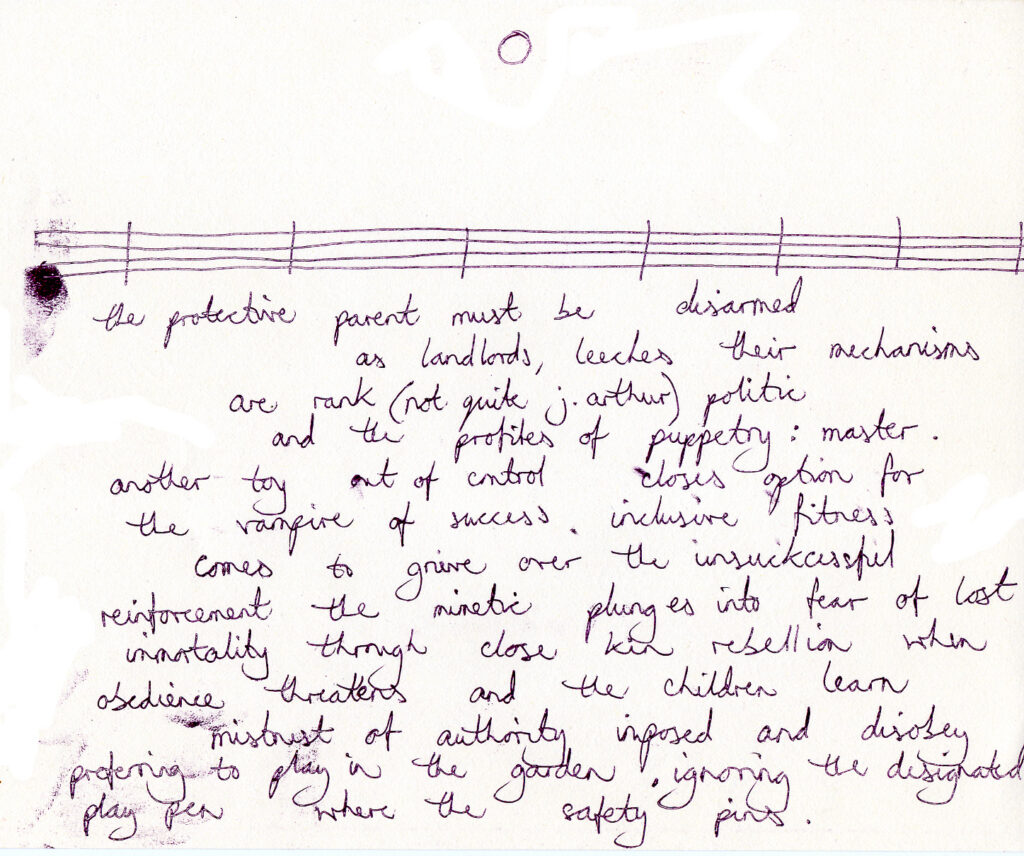 the protective parent must be disarmed
as landlords, leeches their mechanisms
are rank (not quite j. arthur) politic
and the profites of puppetry : master .
another toy out of control closes option for
the vampire of success . inclusive fitness
comes to grieve over the insuckcessful
reinforcement the mimetic plunges into fear of lost
immortality through close kin rebellion when
obedience threatens and the children learn
mistrust of authority imposed and disobey
preferring to play in the garden . ignoring the designated
play pen where the safety pins .